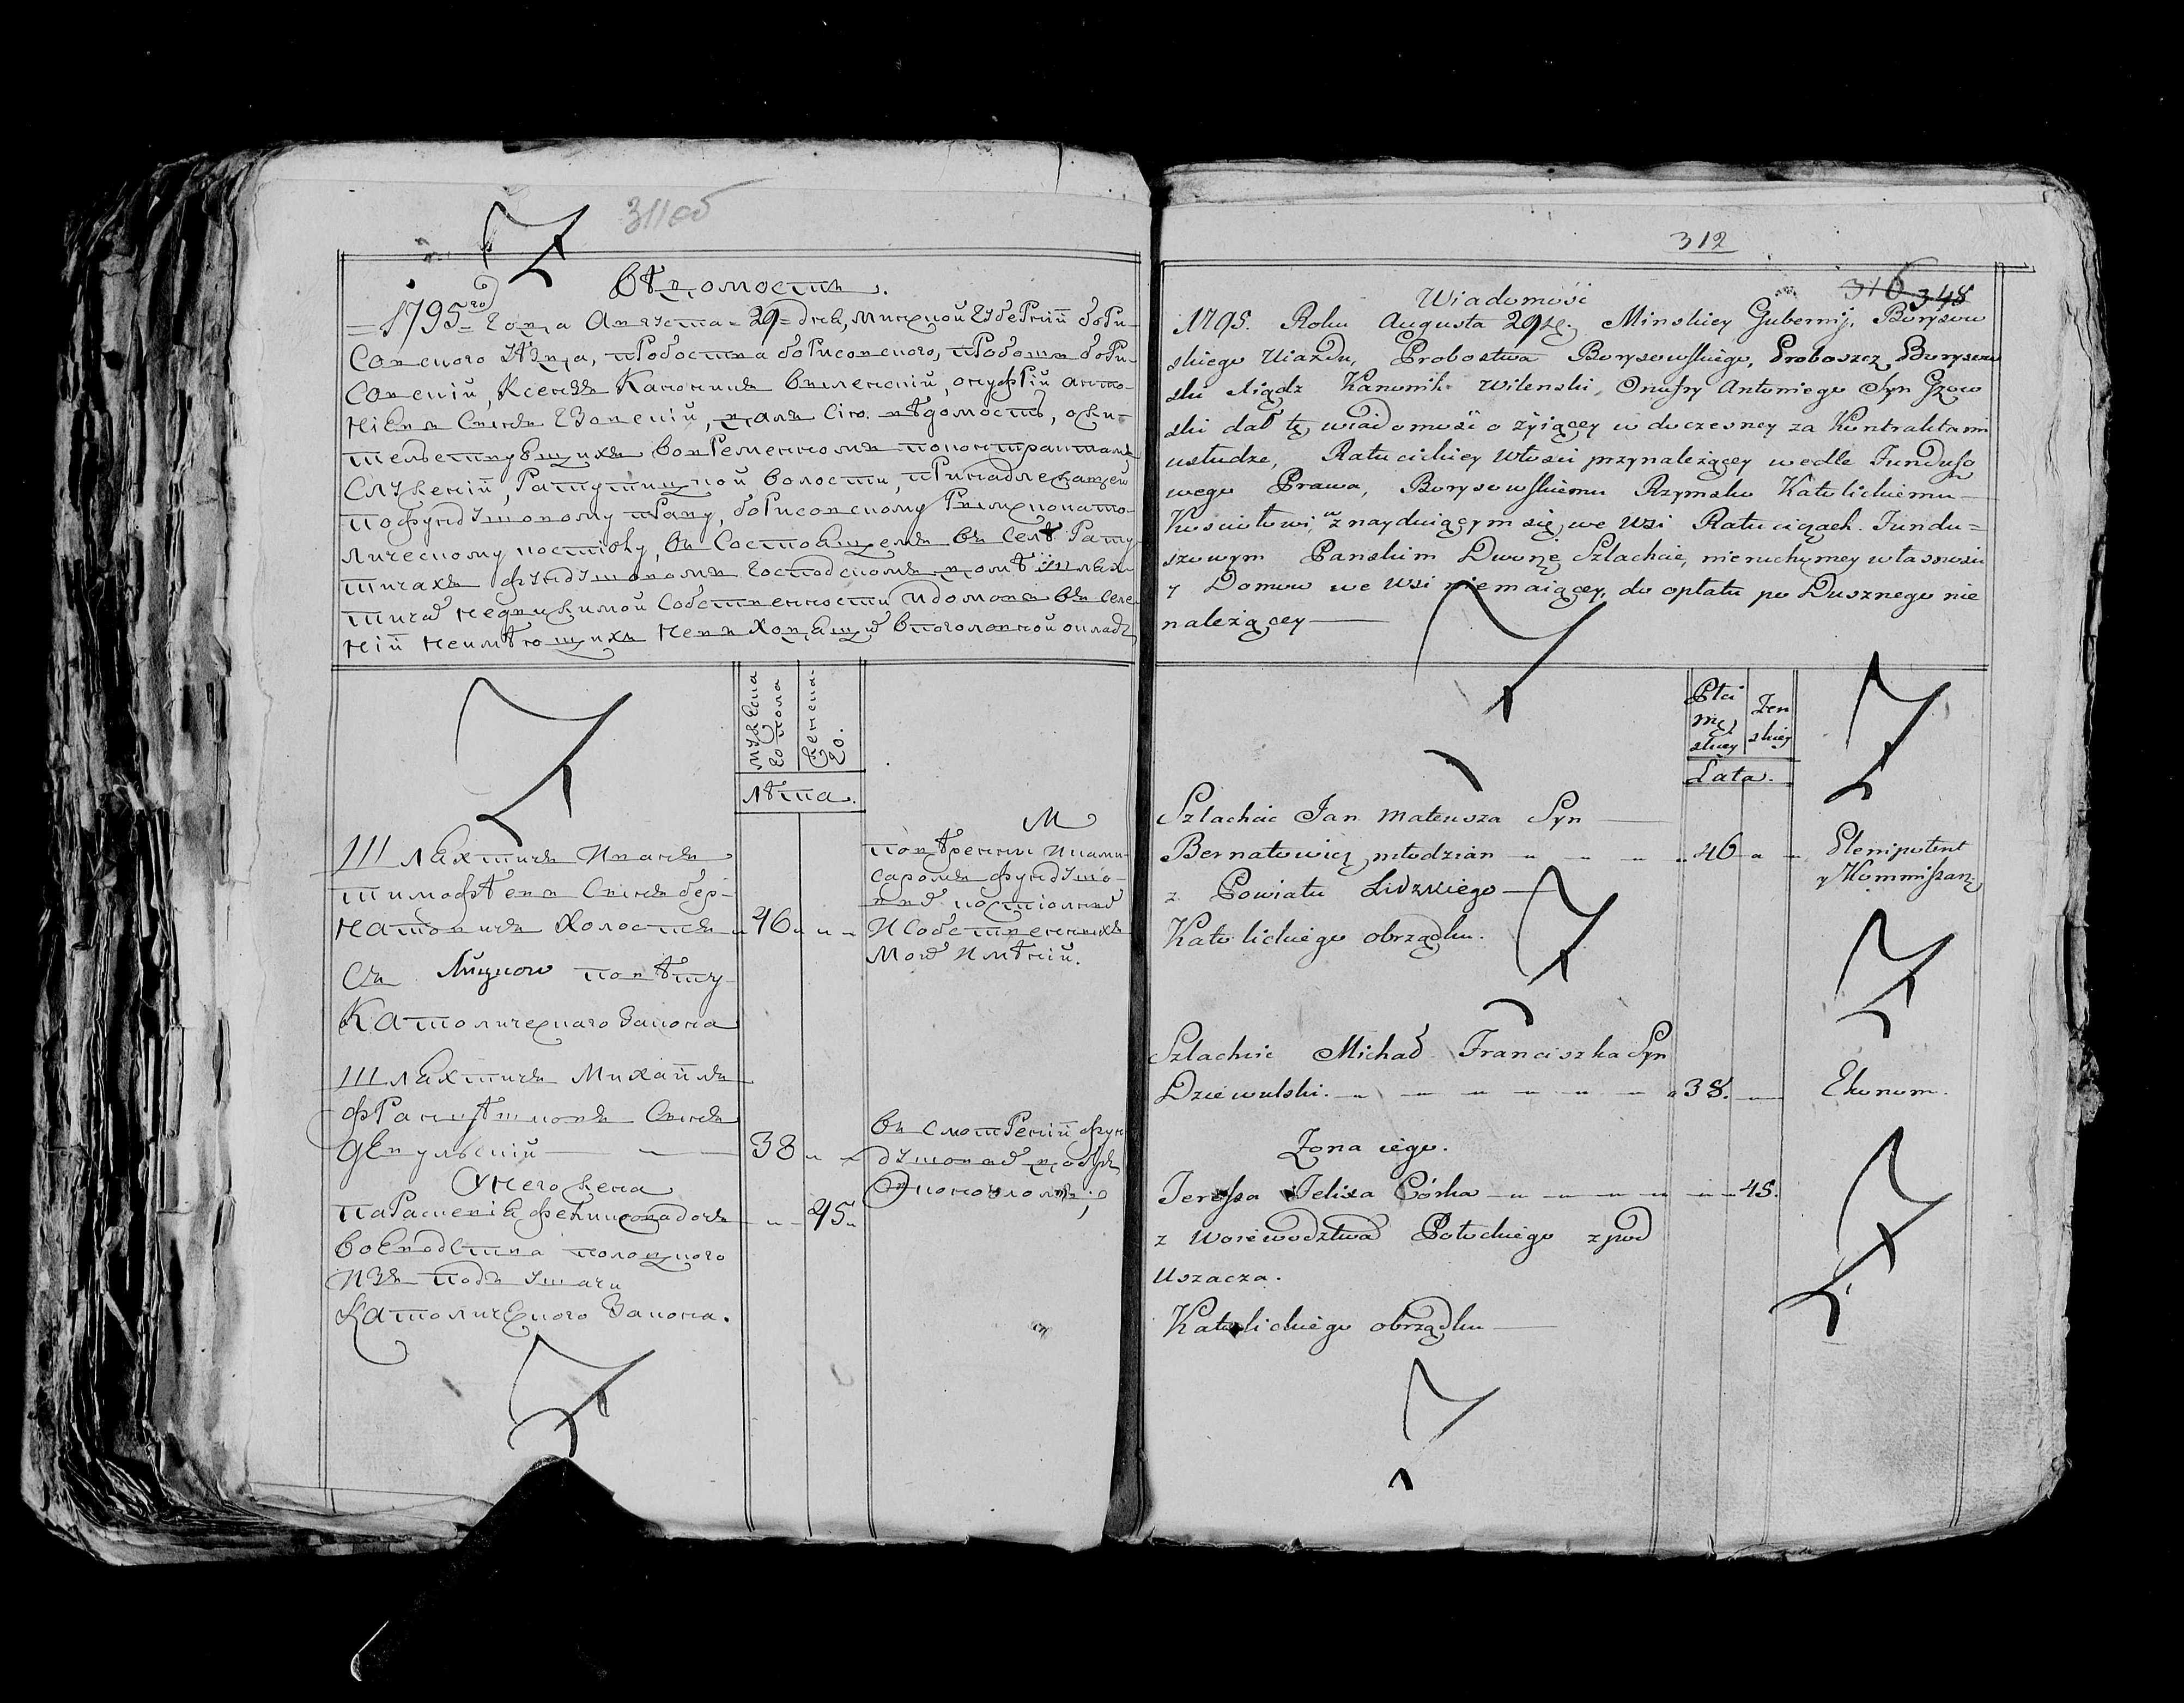 311об
Вѣдомость.
1795го Года Августа 29 дня, Минской Губерніи Бори-
совского Уѣзда, пробоства борисовского, пробощъ бори-
совскій, Ксендзъ Каноникъ виленскій, онуфрій анто-
ніевъ Сынъ Гзовскій, далъ сію вѣдомость, о жи-
тельствующихъ вовременномъ поконтрактамъ
Служеніи, Ратутицкой волости, принадлежащей
пофундушовому праву, борисовскому Римскокато-
лическому костіолу, въ Состоящемъ въ Селѣ Рату-
тичахъ фундушовомъ Господскомъ домѣ шлях-
тичо недвижимой Собственности идомовъ въ селе-
ніи неимѣющихъ невходящо вподоловной окладъ
мужеска
го пола
женска
го.
Лѣта.
Шляхтичъ Иванъ
тимофѣевъ Сынъ бер-
натовичъ холостъ 46
съ Лидzкого повѣту
Католического Закона
повѣренный и коми-
саромъ фундушо-
костіолно
И Собственныхъ
Моо Имѣній.
Шляхтичъ Михайлъ
францѣшковъ Сынъ
Девульскій 38
Унего жена
45
воеводства полоцкого
изъ подъ Ушачи
Католического Закона.
въ смотреніи фун-
душово добръ
Экономомъ;
312
316 348
Wiadomość
1795. Roku Augusta 29 d. Minskiey Gubernij, Borysow
skiego Uiazdu, Probostwa Borysowskiego, Proboszcz Borysow
ski Xiądz Kanonik Wilenski, Onufry Antoniego Syn Gzow
ski dał tę wiadomość o żyiącey w doczesney za Kontraktami
usłudze, Ratucickiey Włosci przynależącey wedle Funduszo
wego Prawa, Borysowskiemu Rzymsko Katolickiemu
Kosciołowi, w znayduiącym się we Wsi Ratucicach Fundu=
szowym Panskim Dworze Szlachcie, nieruchomey własności
y Domow we Wsi niemaiącey, do opłatu po Dusznego nie
należącey
Płci
mę
skiey
Żen
skiey
Lata.
Szlachcic Jan Mateusza Syn
Bernatowicz młodzian 46 Plenipotent
y Kommissarz.
z Powiatu Lidzkiego
Katolickiego obrządku.
Szlachcic Michał Franciszka Syn
Dziewulski 38. Ekonom.
Żona iego.
Teressa Felixa Córka 45.
z Woiewodztwa Połockiego z pod
Uszacza.
Katolickiego obrządku